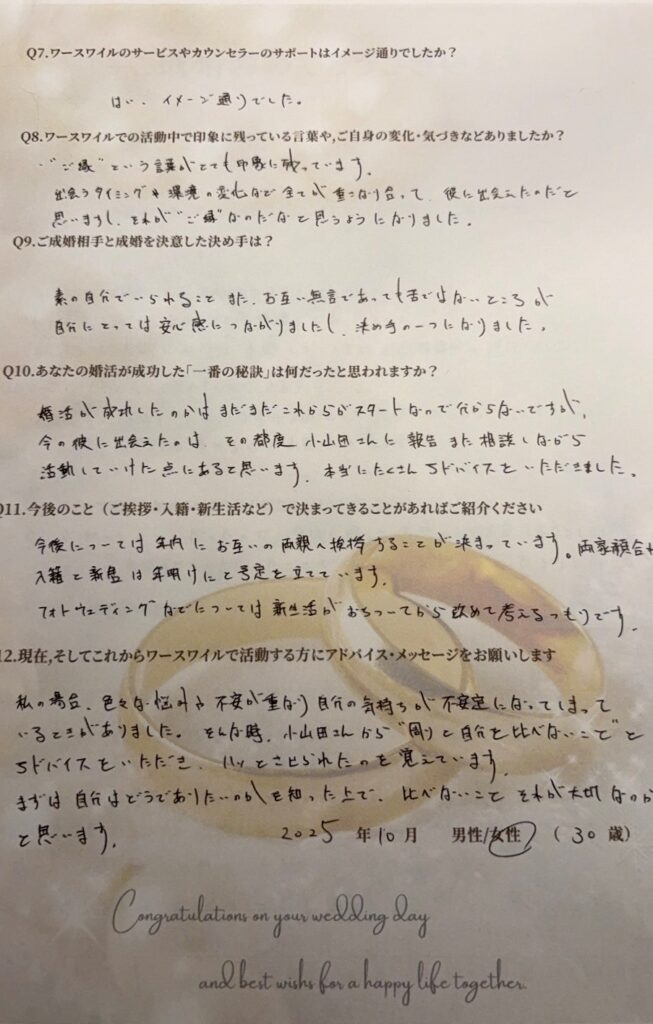 Q7.ワースワイルのサービスやカウンセラーのサポートはイメージ通りでしたか？
はい、イメージ通りでした。
Q8.ワースワイルでの活動中で印象に残っている言葉や,ご自身の変化・気づきなどありましたか？
"ご縁"という言葉がとても印象に残っています。
出会うタイミングや環境の変化など全てが重なり合って、彼に出会えたのだと
思いますし、それが"ご縁"なのだなと思うようになりました。
Q9.ご成婚相手と成婚を決意した決め手は？
素の自分でいられること また、お互い無言であっても苦ではないところが
自分にとっては安心感につながりましたし、決め手の一つになりました。
Q10.あなたの婚活が成功した「一番の秘訣」は何だったと思われますか？
婚活が成功したのかはまだまだこれからがスタートなので分からないですが、
今の彼に出会えたのは、その都度 小山田さんに報告また相談しながら
活動していけた点にあると思います。本当にたくさんアドバイスをいただきました。
Q11.今後のこと（ご挨拶・入籍・新生活など）で決まってきることがあればご紹介ください
今後については年内にお互いの両親へ挨拶することが決まっています。両家顔合
入籍と新居は年明けにと予定を立てています。
フォトウェディングなどについては新生活がおちついてから改めて考えるつもりです。
12.現在,そしてこれからワースワイルで活動する方にアドバイス・メッセージをお願いします
私の場合、色々な悩みや不安が重なり自分の気持ちが不安定になってしまって
いるときがありました。そんな時、小山田さんから"周りと自分を比べないこと"と
アドバイスをいただき、ハッとさせられたのを覚えています。
まずは自分はどうでありたいのかを知った上で、比べないこと それが大切なのか
と思います。
2025 年 10 月 男性/女性 （ 30 歳）
Congratulations on your wedding day
and best wishes for a happy life together.